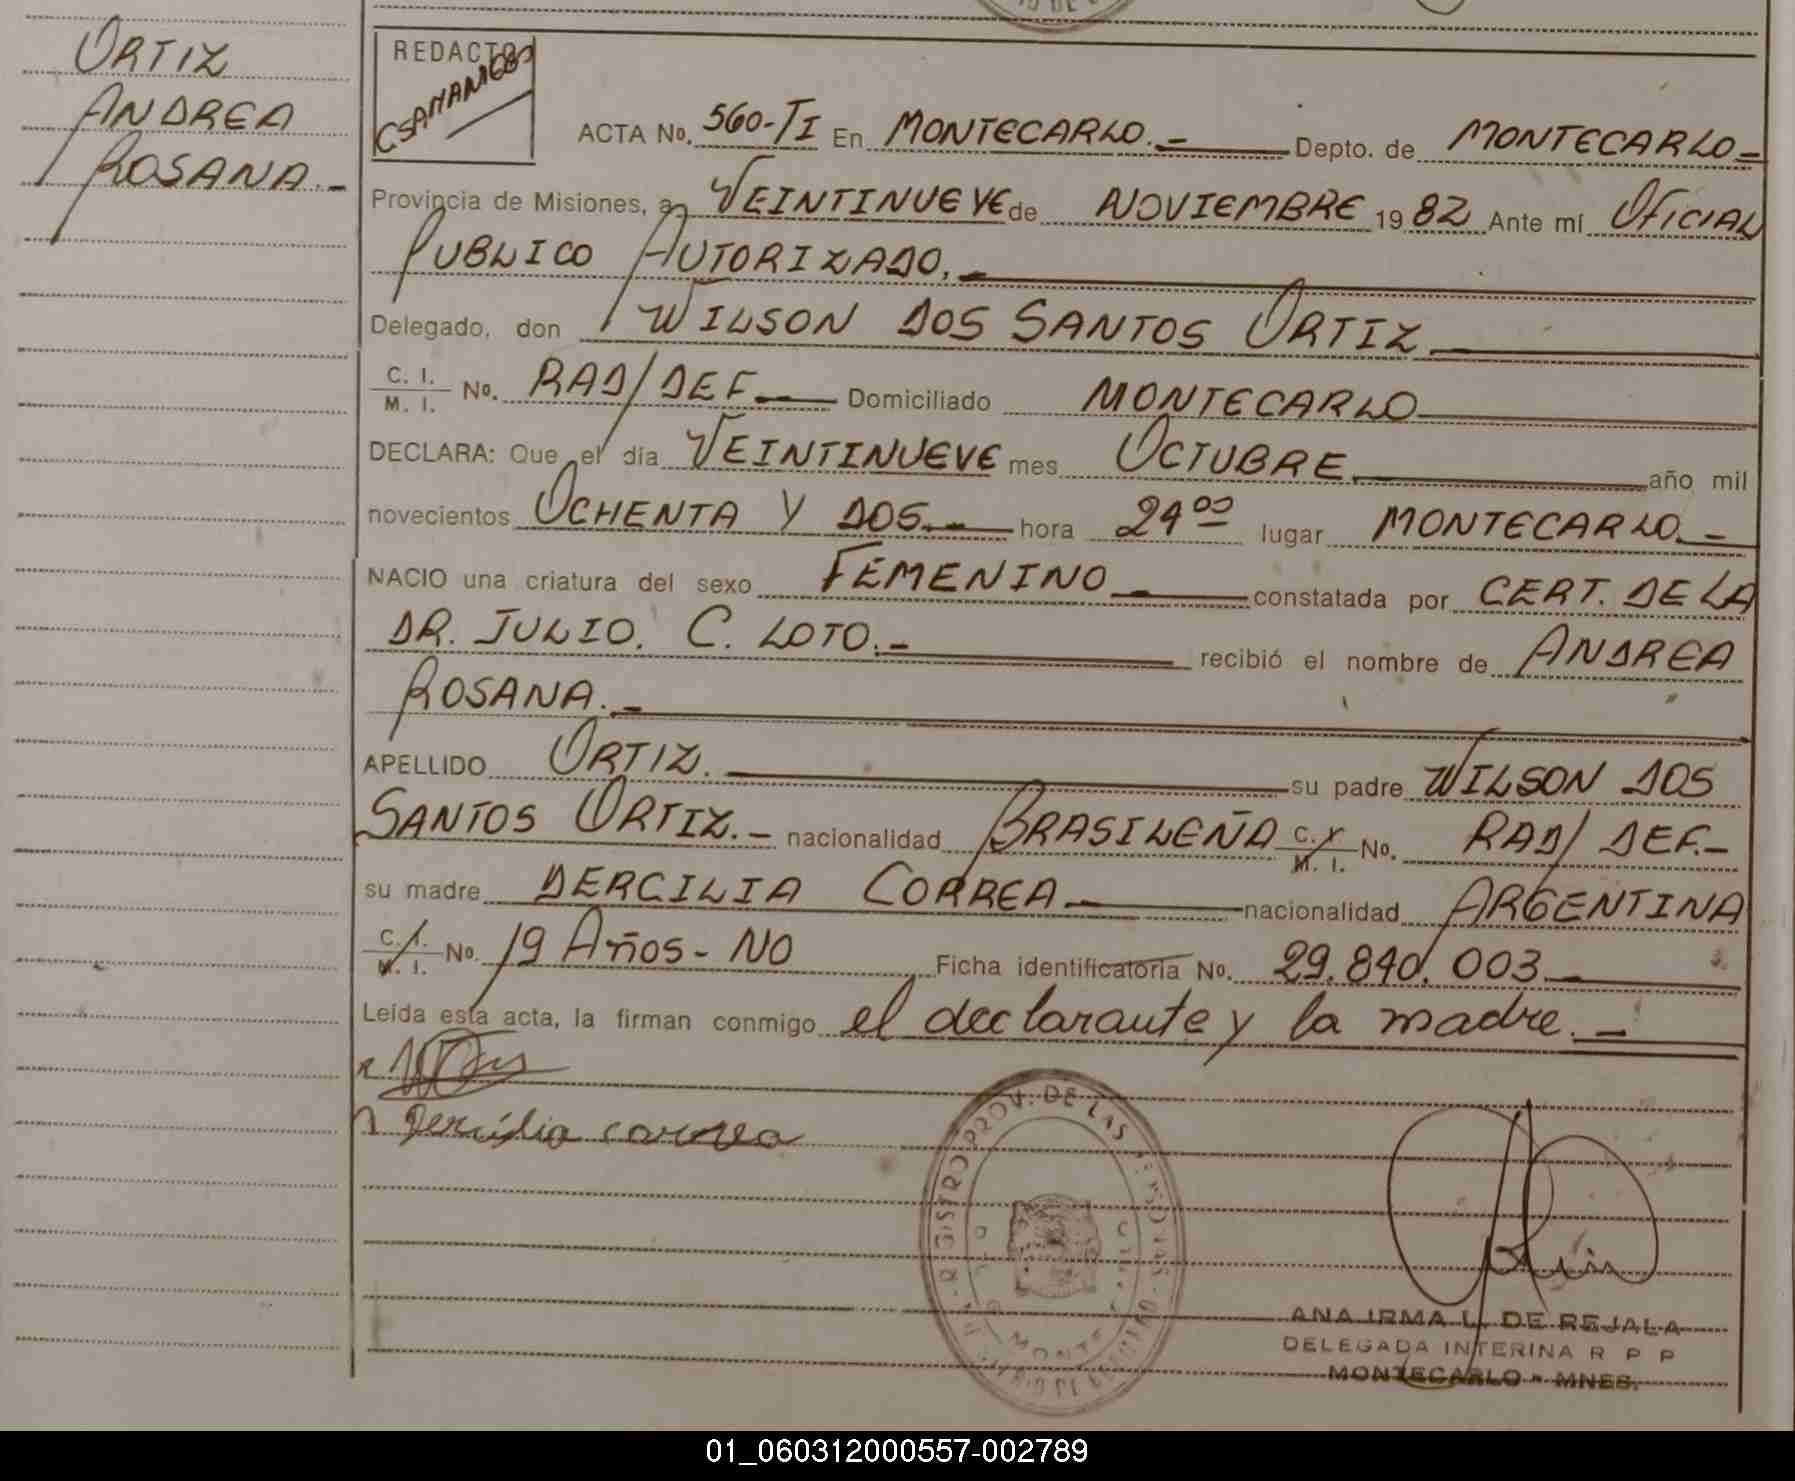 ORTIZ
ANDREA
ROSANA.-
REDACTO
ACTA No. 560-TI En MONTECARLO.- Depto. de MONTECARLO-
Provincia de Misiones, a VEINTINUEVE de NOVIEMBRE 1982 Ante mí OFICIAL
PUBLICO AUTORIZADO.-
Delegado, don WILSON DOS SANTOS ORTIZ
C. I. / M. I. No. RAD/DEF.- Domiciliado MONTECARLO
DECLARA: Que el día VEINTINUEVE mes OCTUBRE año mil
novecientos OCHENTA Y DOS.- hora 24 00 lugar MONTECARLO.-
NACIO una criatura del sexo FEMENINO constatada por CERT. DE LA
DR. JULIO. C. LOTO.- recibió el nombre de ANDREA
ROSANA.-
APELLIDO ORTIZ. su padre WILSON DOS
SANTOS ORTIZ.- nacionalidad BRASILEÑA C. I. / M. I. No. RAD/DEF.-
su madre DERCILIA CORREA nacionalidad ARGENTINA
C. I. / M. I. No. 19 AÑOS - NO Ficha identificatoria No. 29.840.003
Leída esta acta, la firman conmigo el declarante y la madre.-
Dercilia correa
PROV. DE LAS
MONTE
ANA IRMA L. DE REJALA
DELEGADA INTERINA R P P
MONTECARLO - MNES.
01_060312000557-002789